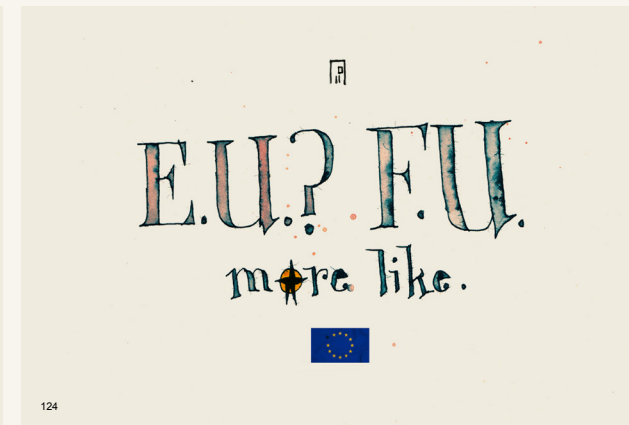 E.U.? F.U.
more like.
124